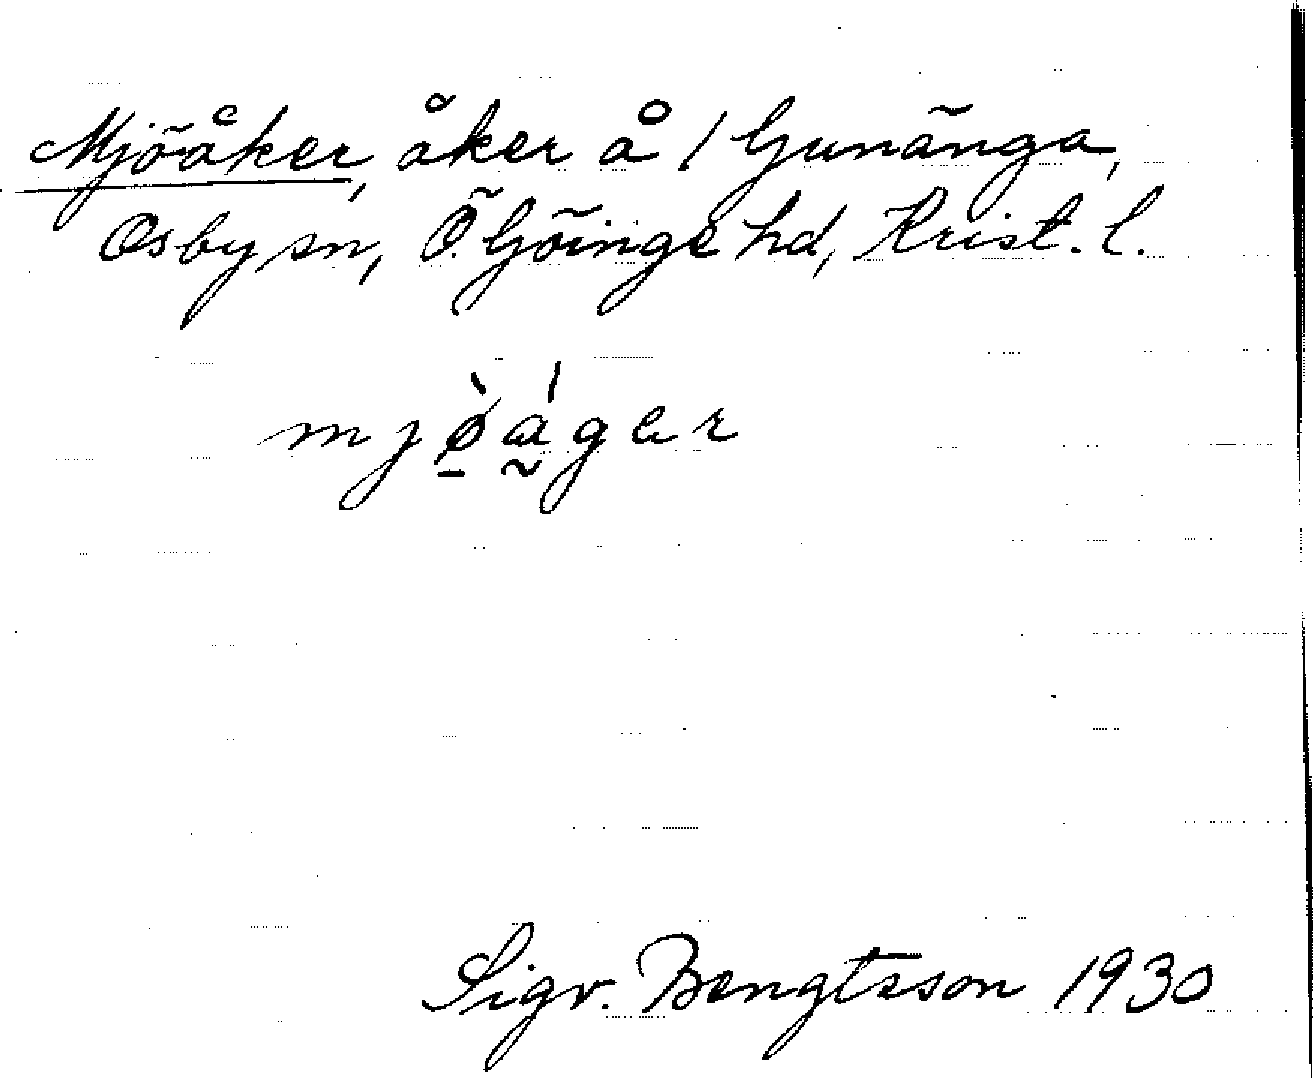 Mjöåker, åker å 1 Gunänga,
Osby sn, Ö. Göinge hd, Krist. l.
mjø̱̀á̰ger
Sigv. Bengtsson 1930